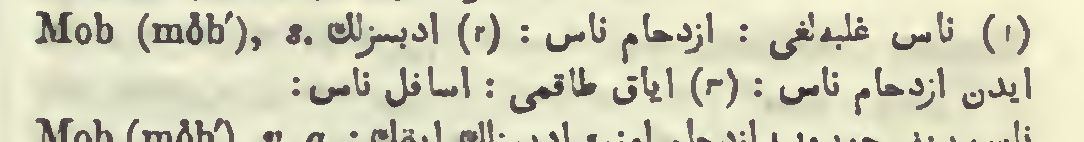 Mob (mŏb′), s. (١) ناس غلبه‌لغی : ازدحام ناس : (٢) ادبسزلك
ایدن ازدحام ناس : (٣) ایاق طاقمی : اسافل ناس :
Mob (mŏb′), v. a.